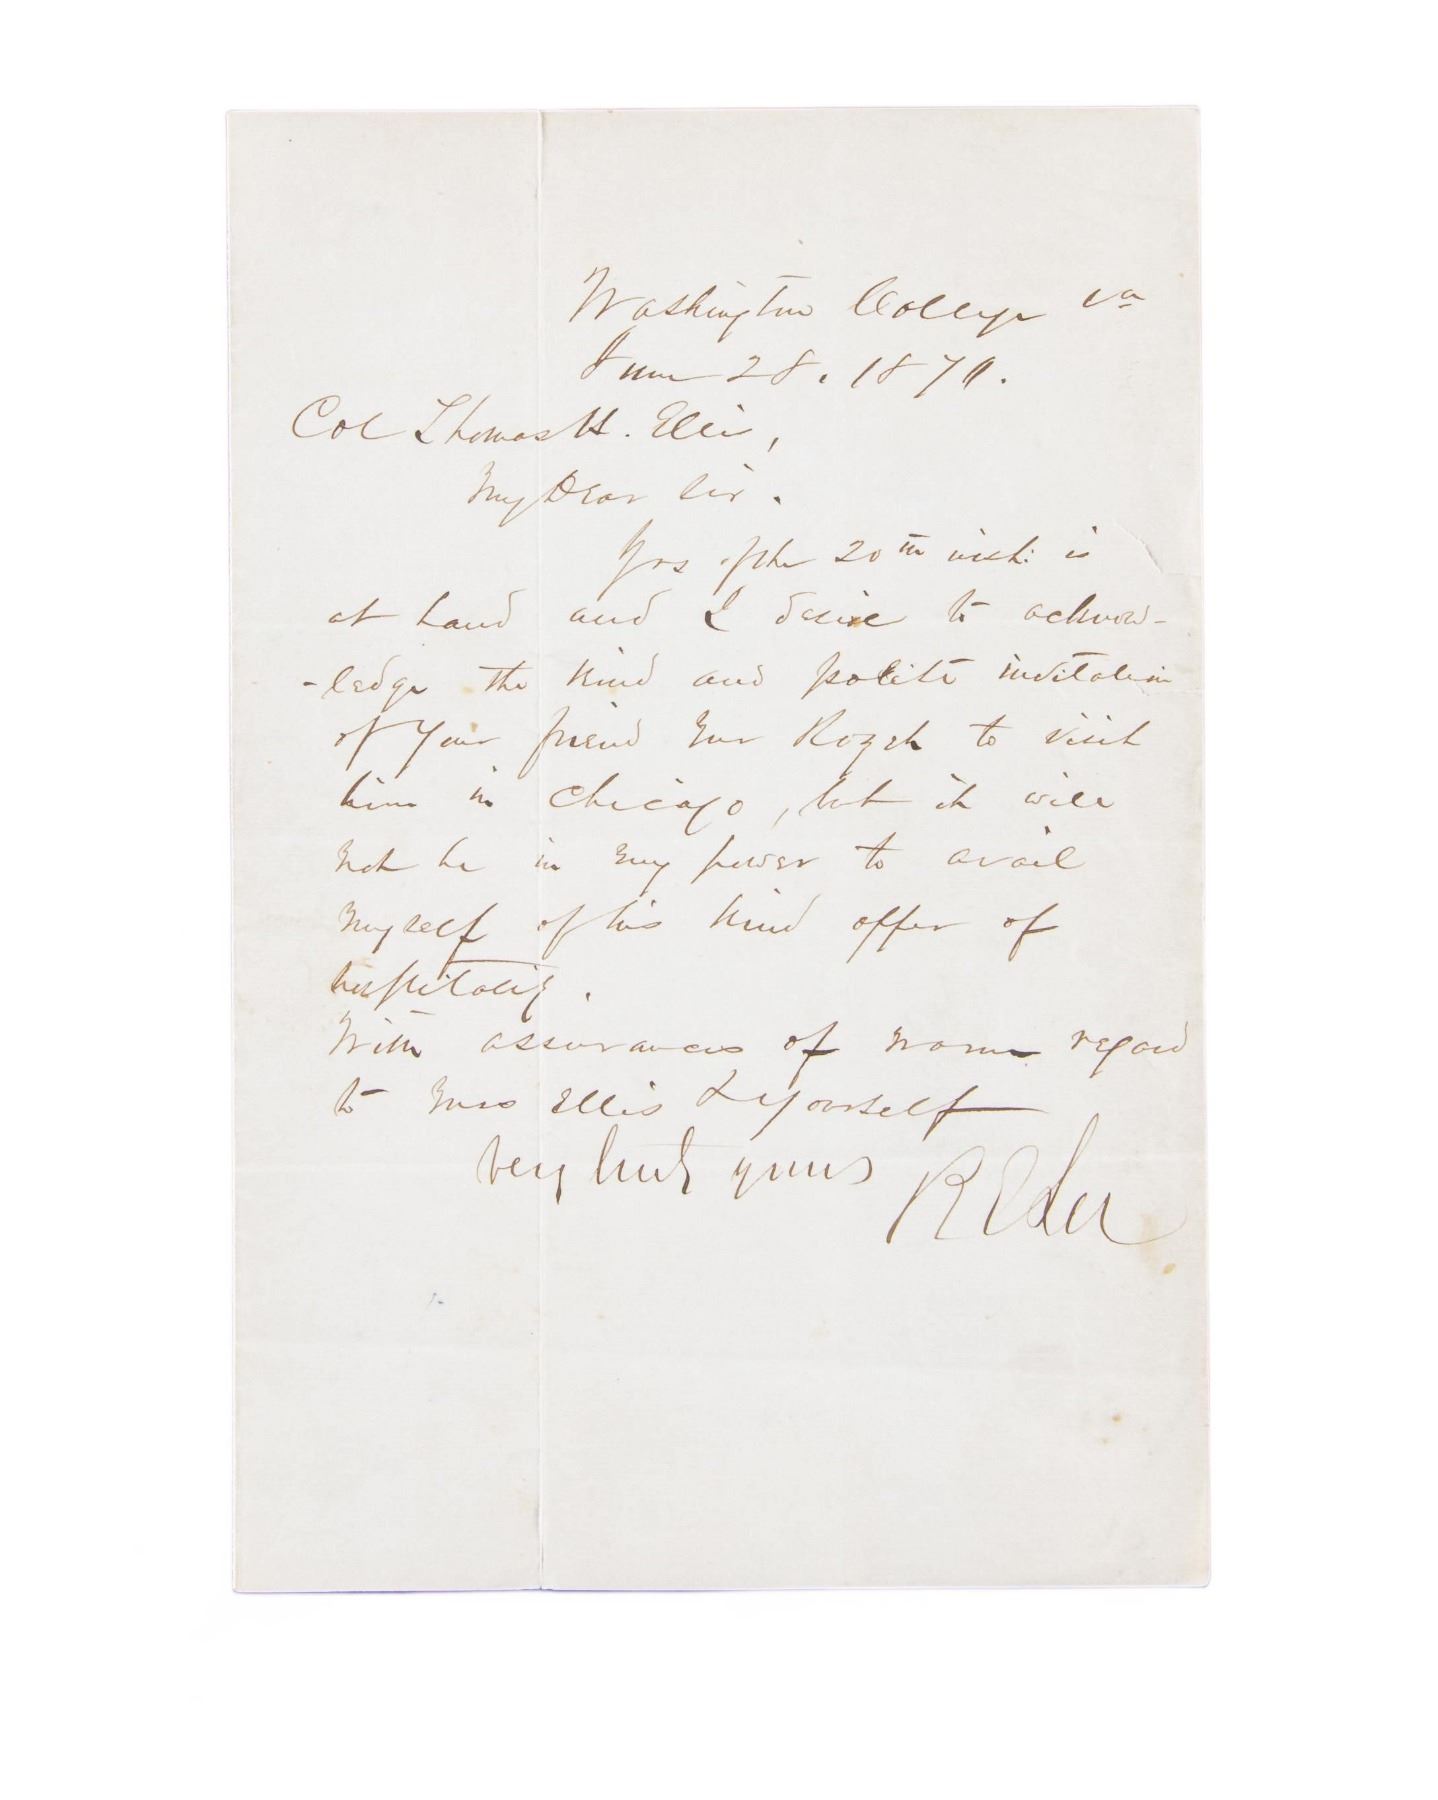 Washington College Va
June 28. 1870.
Col Thomas H. Ellis,
My Dear Sir.
Yrs of the 20th inst: is
at hand and I desire to acknow-
-ledge the kind and polite invitation
of your friend Mr to visit
him in Chicago, but it will
not be in my power to avail
myself of his kind offer of
hospitality.
With assurances of warm regard
to Mrs Ellis & yourself
Very truly yours R E Lee